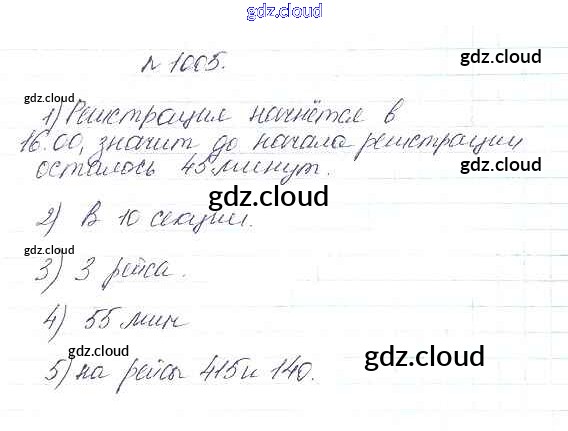 gdz.cloud
№ 1005.
gdz.cloud
gdz.cloud
1) Регистрация начнётся в
16.00, значит до начала регистрации
осталось 45 минут.
gdz.cloud
2) В 10 секции.
gdz.cloud
3) 3 рейса.
4) 55 мин
gdz.cloud
gdz.cloud
5) на рейсы 415 и 140.